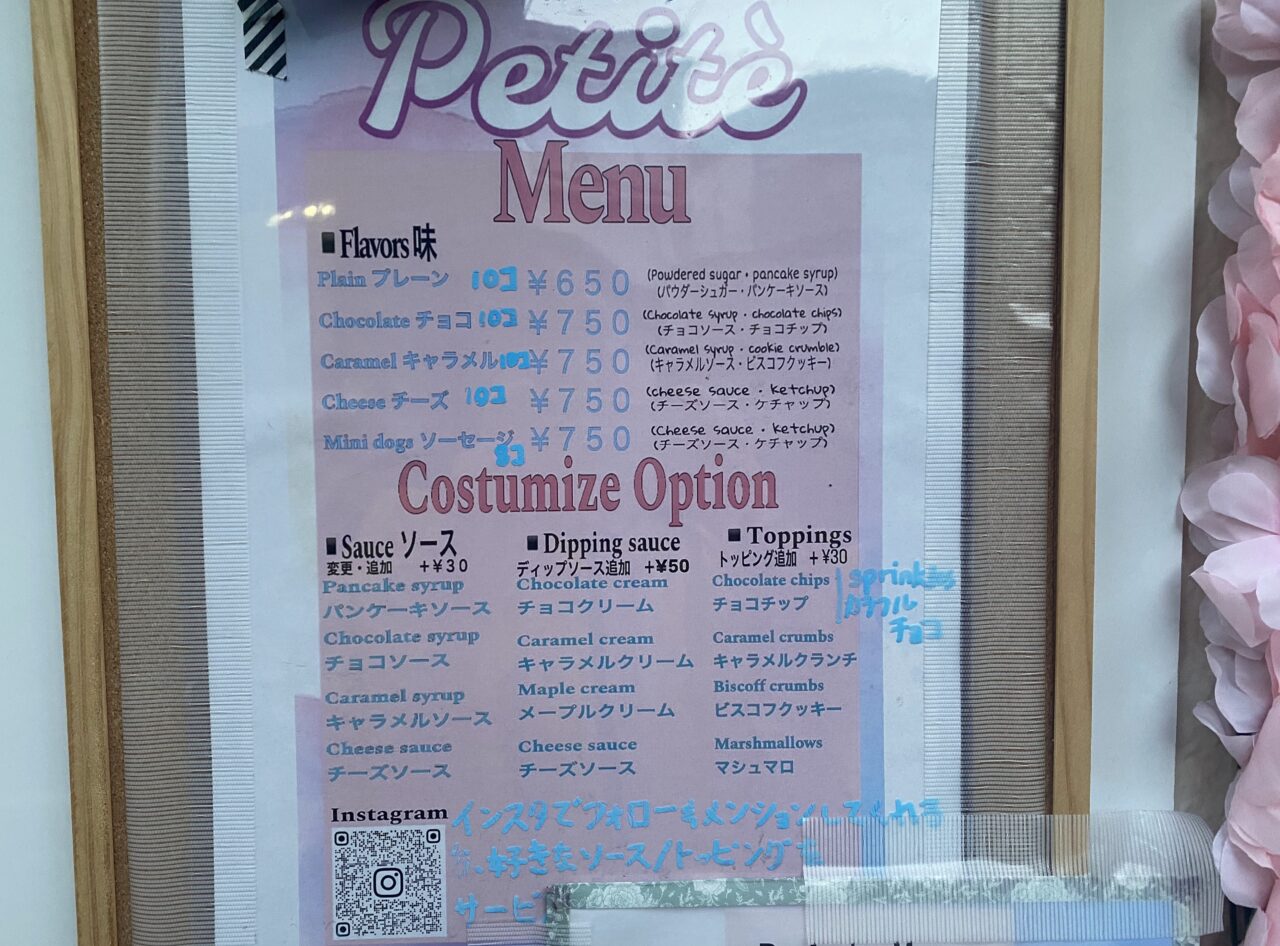 Petitè
Menu
Flavors 味
Plain プレーン 10コ ¥650 (Powdered sugar・pancake syrup)
(パウダーシュガー・パンケーキソース)
Chocolate チョコ 10コ ¥750 (Chocolate syrup・chocolate chips)
(チョコソース・チョコチップ)
Caramel キャラメル 10コ ¥750 (Caramel syrup・cookie crumble)
(キャラメルソース・ビスコフクッキー)
Cheese チーズ 10コ ¥750 (cheese sauce・ketchup)
(チーズソース・ケチャップ)
Mini dogs ソーセージ 8コ ¥750 (Cheese sauce・ketchup)
(チーズソース・ケチャップ)
Costumize Option
Sauce ソース
変更・追加 +¥30
Pancake syrup
パンケーキソース
Chocolate syrup
チョコソース
Caramel syrup
キャラメルソース
Cheese sauce
チーズソース
Dipping sauce
ディップソース追加 +¥50
Chocolate cream
チョコクリーム
Caramel cream
キャラメルクリーム
Maple cream
メープルクリーム
Cheese sauce
チーズソース
Toppings
トッピング追加 +¥30
Chocolate chips
チョコチップ
sprinkles
カラフル
チョコ
Caramel crumbs
キャラメルクランチ
Biscoff crumbs
ビスコフクッキー
Marshmallows
マシュマロ
Instagram
インスタでフォロー&メンションしてくれる
好きなソース/トッピングを
サービ